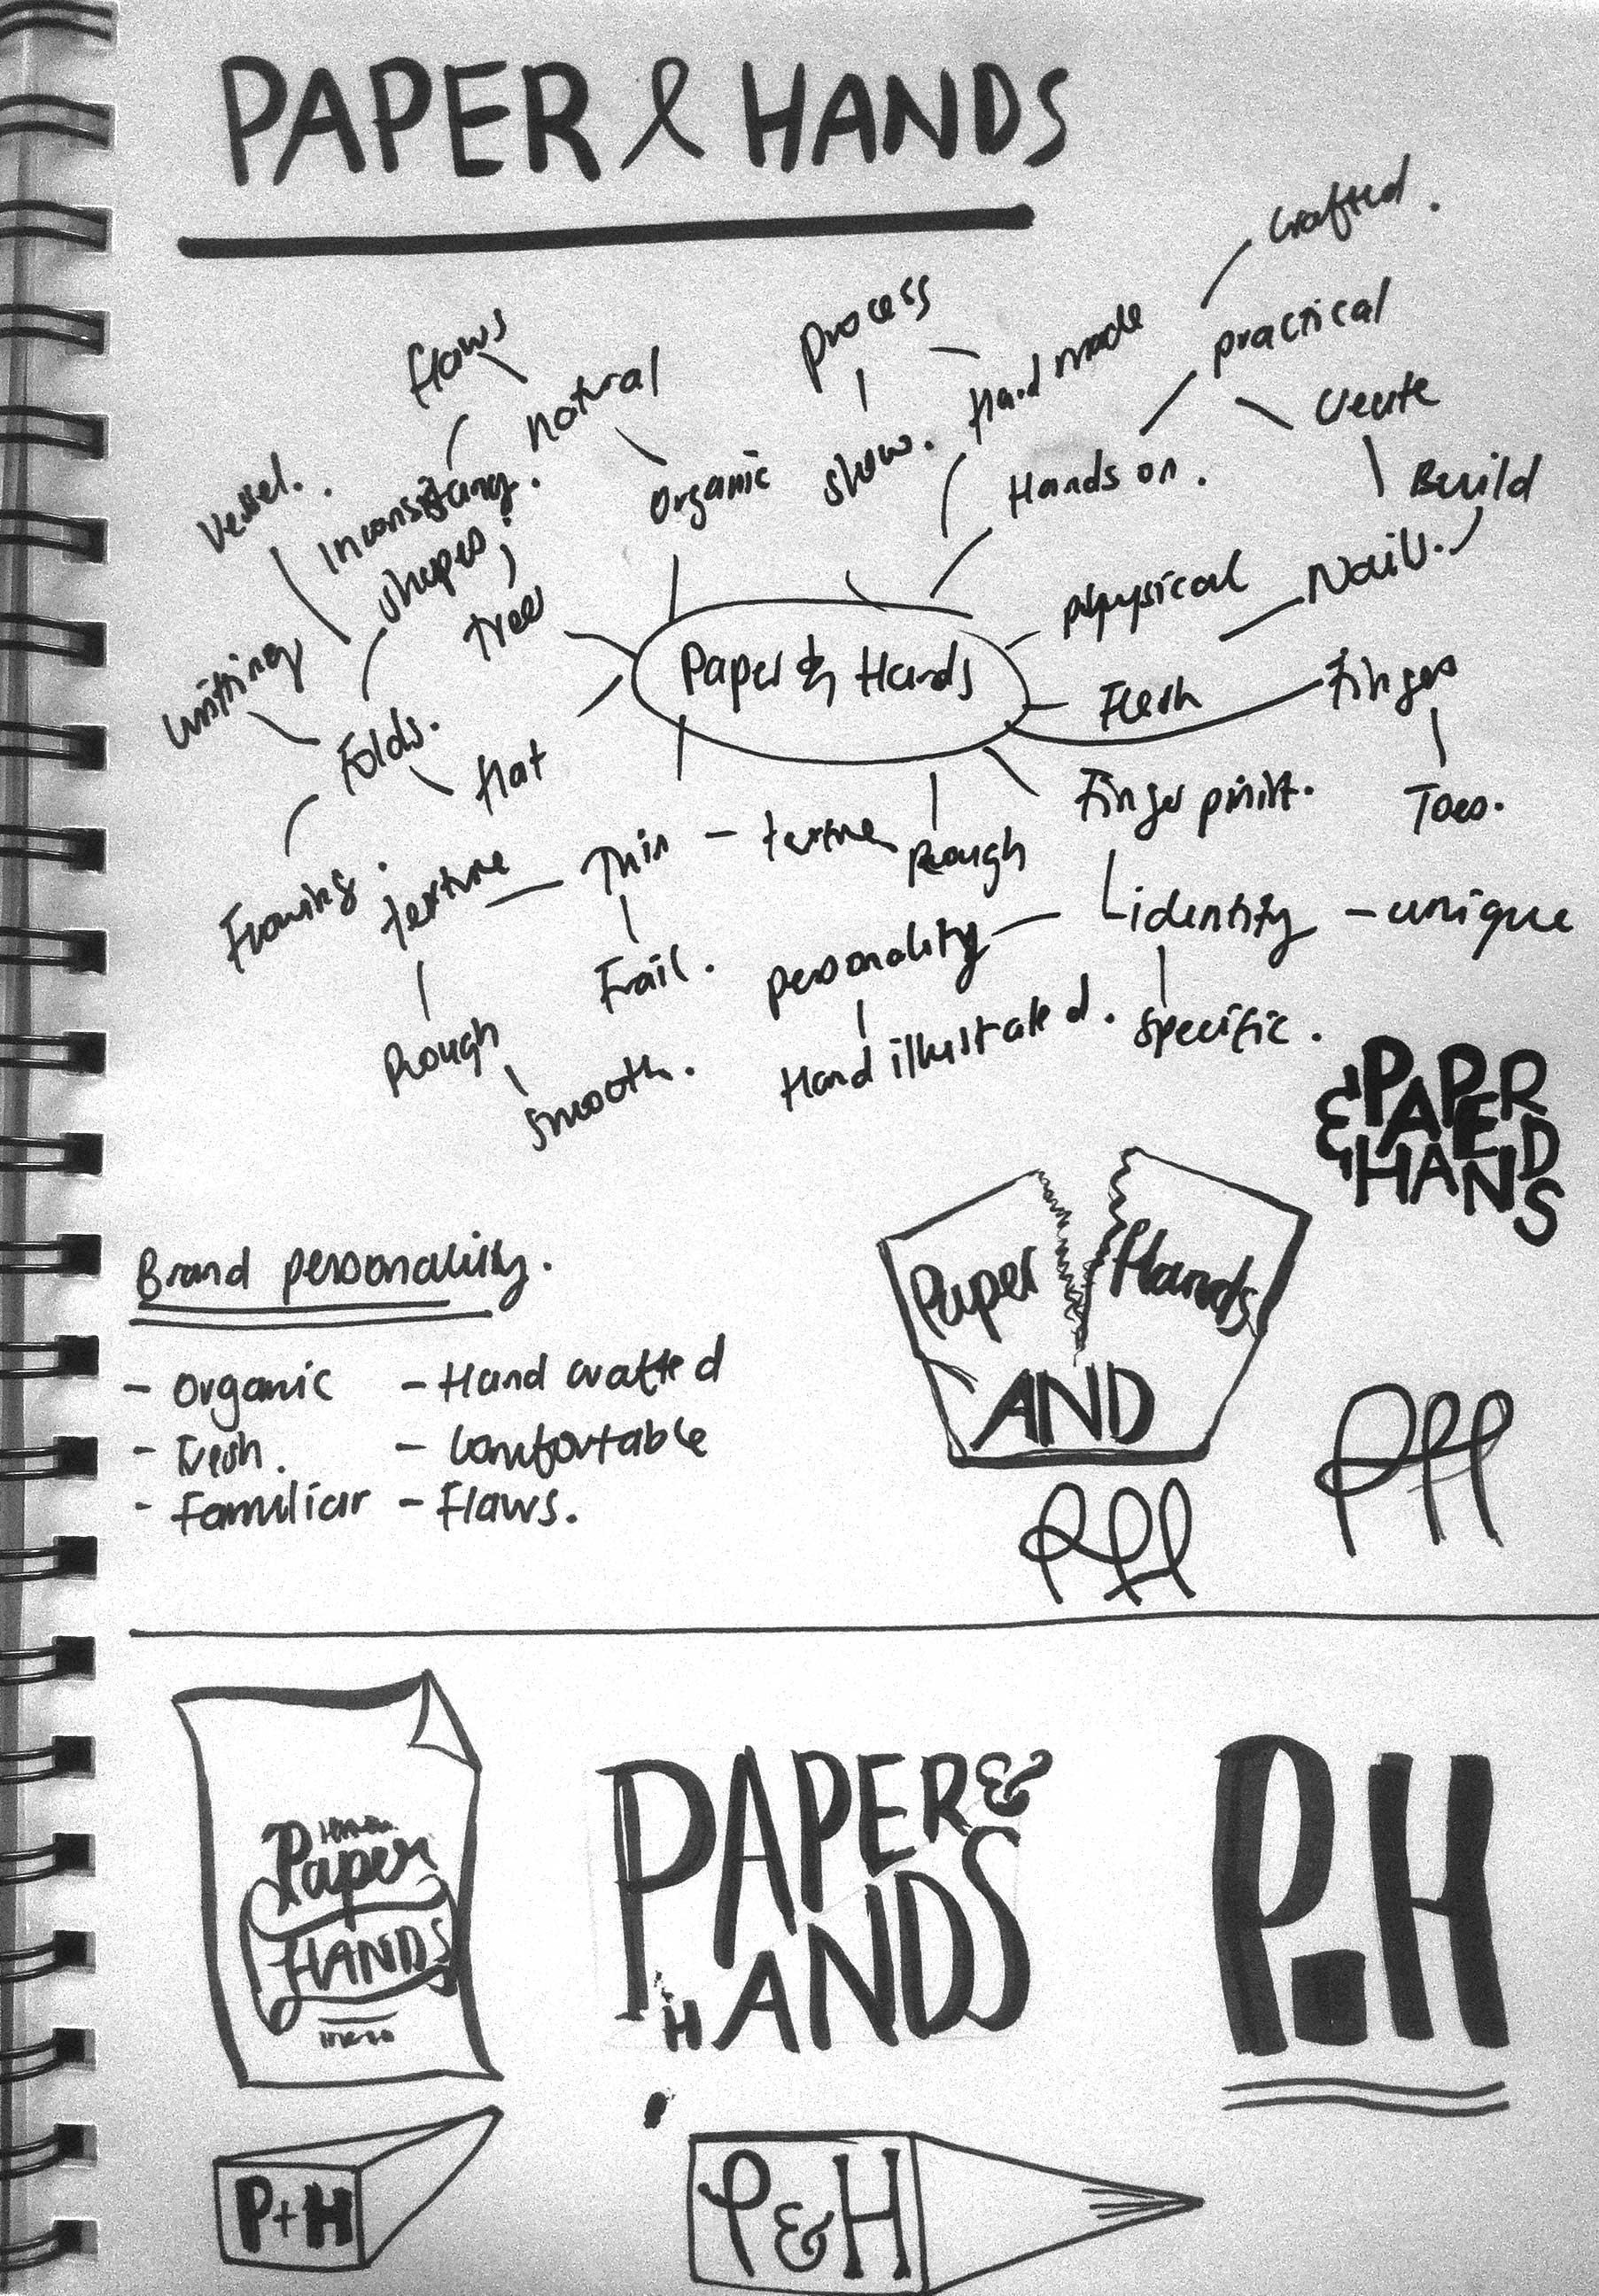 PAPER & HANDS
Crafted.
Process
Hand made
practical
flaws
natural
Create
Vessel.
Inconsistancy.
Organic
show.
Hands on.
Build
shapes.
tree
physical
Nails.
Paper & Hands
Flesh
Fingers
Folds.
flat
Finger print.
Toes.
texture
Thin
texture
Rough
identity
unique
Frail.
personality
Rough
smooth.
Hand illustrated.
specific.
& PAPER
& HANDS
Paper
Hands
AND
Brand personality.
- Organic
- Hand crafted
- Fresh.
- Comfortable
- Familiar
- Flaws.
PH
PH
Paper
HANDS
PAPER &
HANDS
P.H
P+H
P&H